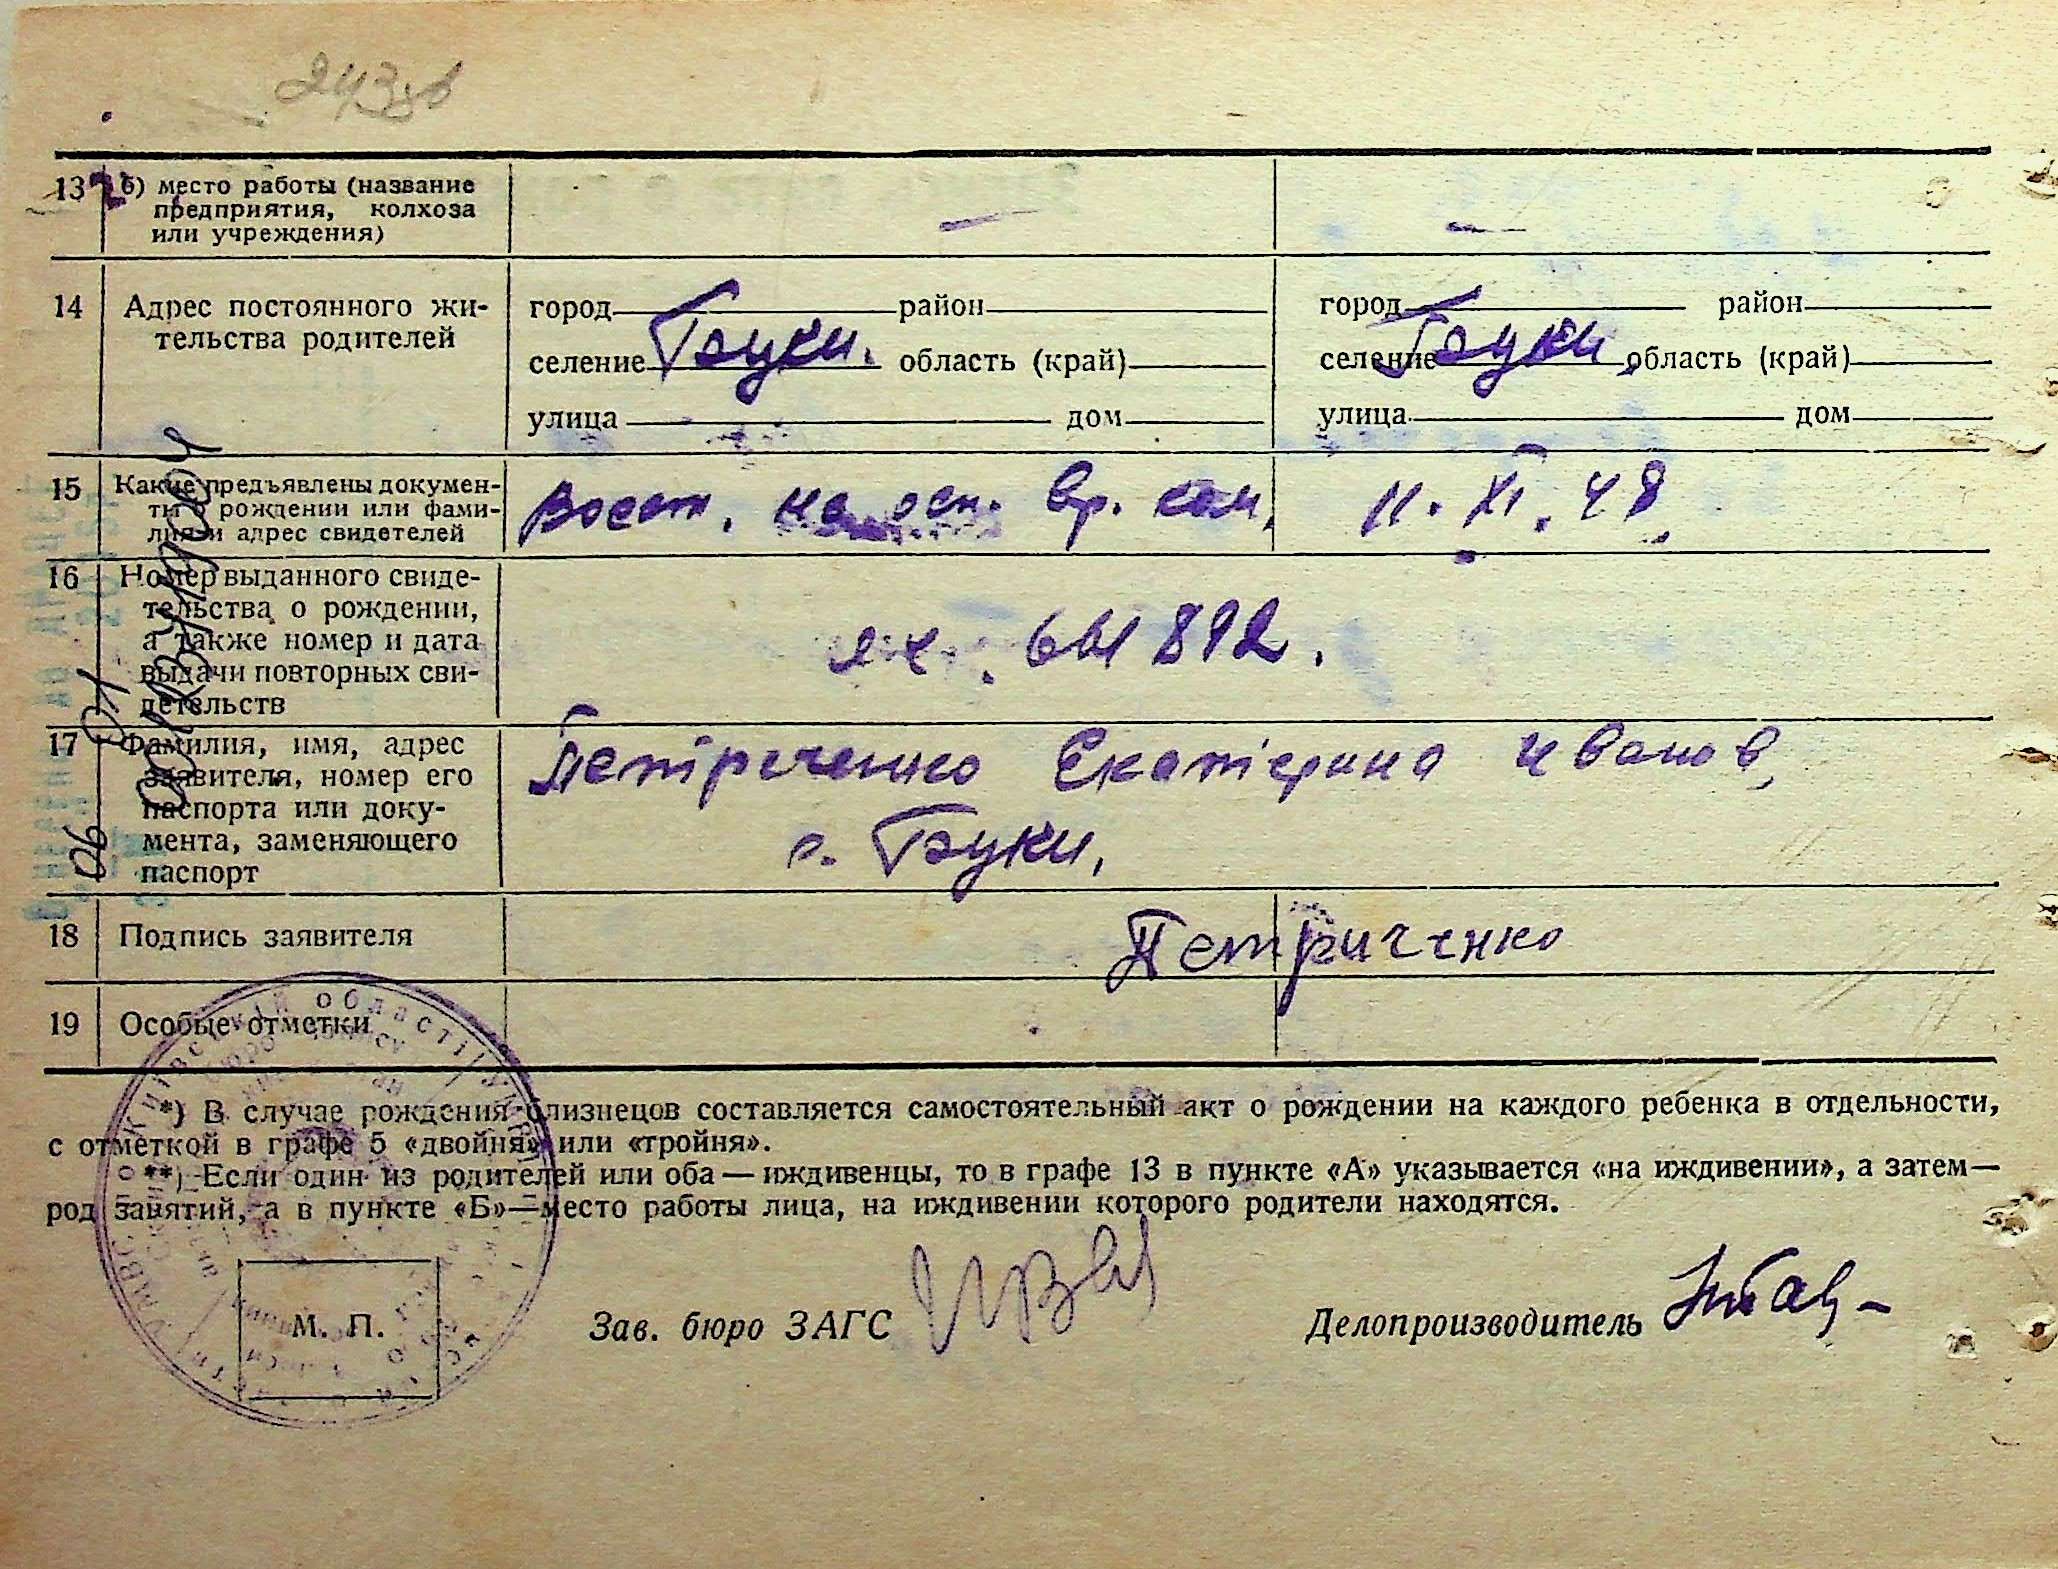 13 б) место работы (название
предприятия, колхоза
или учреждения) — —
14 Адрес постоянного жи-
тельства родителей
город район
селение Гэуки. область (край)
улица дом
город район
селение Гэуки, область (край)
улица дом
15 Какие предъявлены докумен-
ты о рождении или фами-
лия и адрес свидетелей
Восст. на осн. вр. ком. 11. XI. 48
16 Номер выданного свиде-
тельства о рождении,
а также номер и дата
выдачи повторных сви-
детельств
17 Фамилия, имя, адрес
заявителя, номер его
паспорта или доку-
мента, заменяющего
паспорт
Петреченко Екатерина Иванов,
с. Гэуки,
18 Подпись заявителя Петриченко
19 Особые отметки
*) В случае рождения близнецов составляется самостоятельный акт о рождении на каждого ребенка в отдельности,
с отметкой в графе 5 «двойня» или «тройня».
**) Если один из родителей или оба — иждивенцы, то в графе 13 в пункте «А» указывается «на иждивении», а затем —
род занятий, а в пункте «Б» — место работы лица, на иждивении которого родители находятся.
М. П. Зав. бюро ЗАГС Делопроизводитель